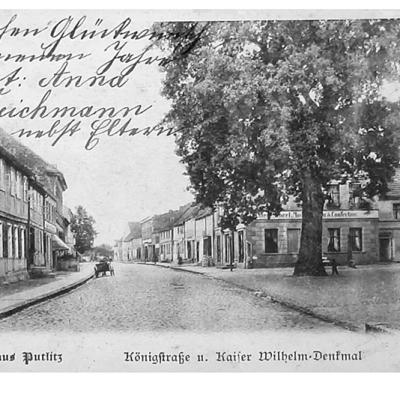 chen Glückwunsch
neuen Jahre
t: Anna
eichmann
nebst Eltern
& Confection
aus Putlitz
Königſtraße u. Kaiſer Wilhelm-Denkmal